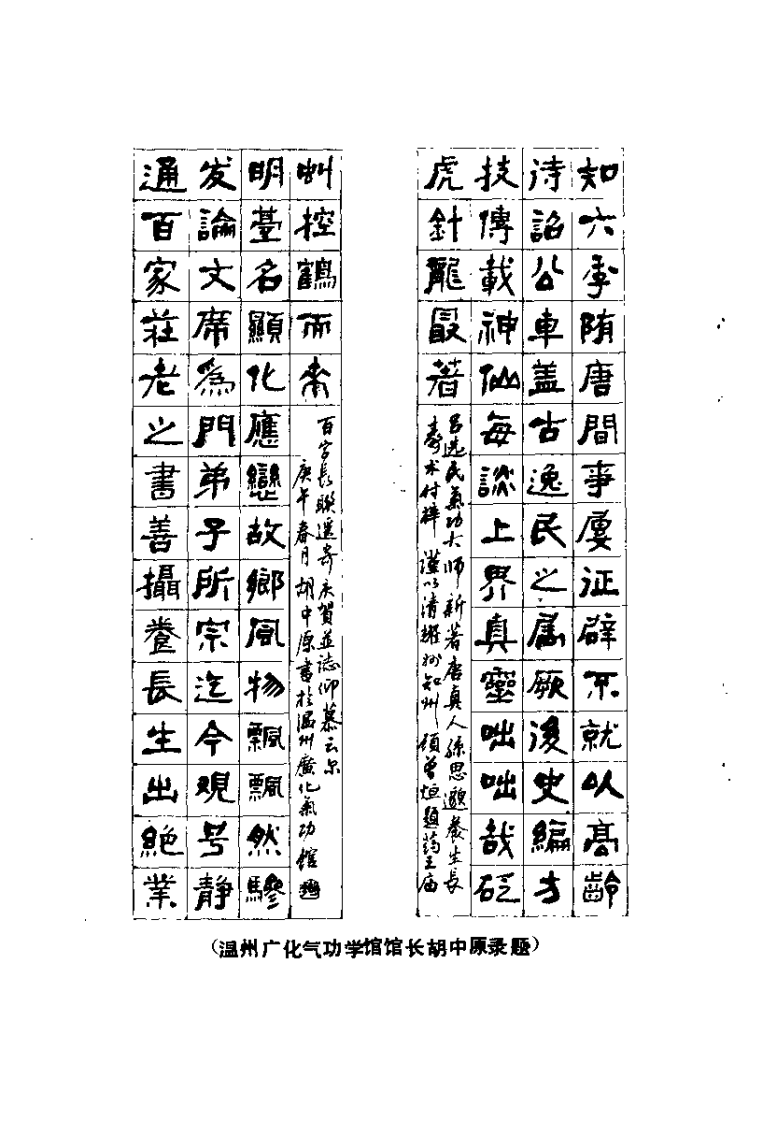 知六季隋唐間事屢征辟不就以高齡
待詔公車盖古逸民之属厥後史編方
技傳載神仙每談上界真靈咄咄哉砭
虎針龍最著
呂选民氣功大师新著唐真人孫思邈养生長
壽术付梓 谨以清耀州知州 顧曾烜題药王庙
通百家莊老之書善攝養長生出絶業
发論文席為門弟子所宗迄今观号静
明臺名顯化應戀故鄉風物飄飄然驂
虯控鶴而来
百字長聯遥寄庆賀並誌仰慕云尔
庚午春月胡中原書於温州廣化氣功館
（温州广化气功学馆馆长胡中原录题）